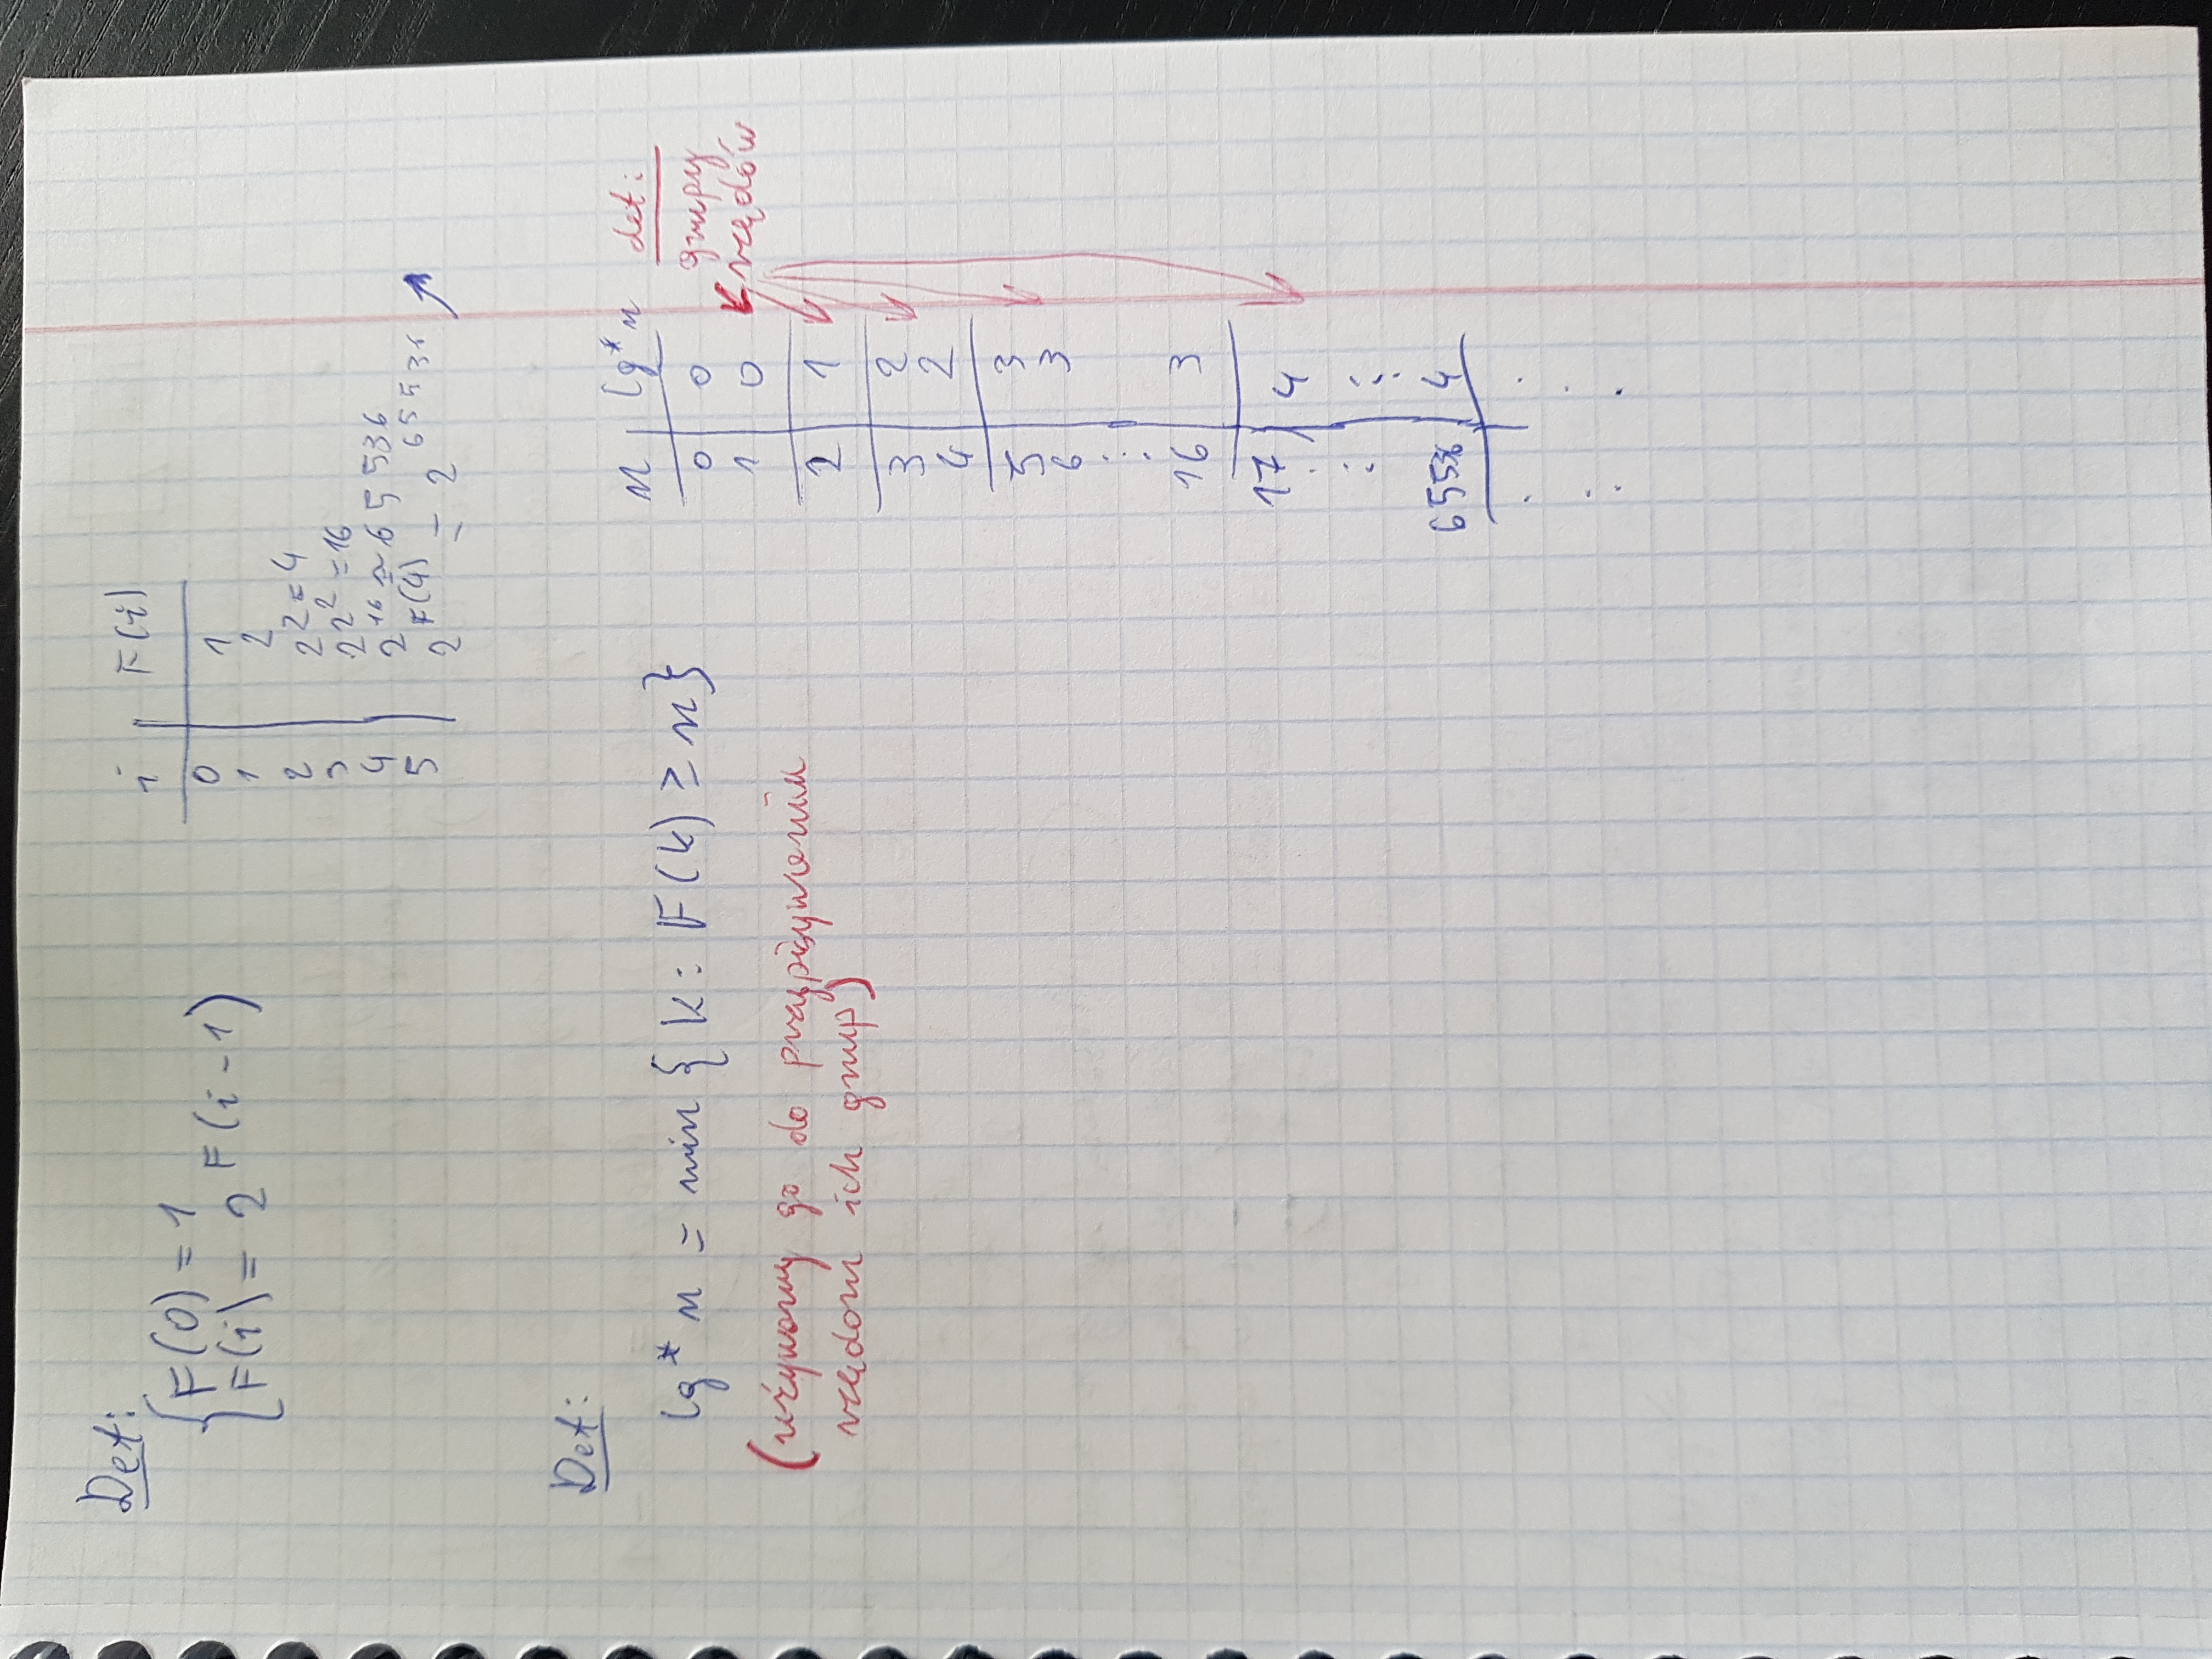 Def:
F(0) = 1
F(i) = 2^F(i-1)
i | F(i)
0 | 1
1 | 2
2 | 2^2 = 4
3 | 2^2^2 = 16
4 | 2^16 = 65 536
5 | 2^F(4) = 2^65536 ↗
Def:
lg* n = min {k: F(k) ≥ n}
(używamy go do przypisywania
rzędom ich grup)
n | lg* n
0 | 0
1 | 0
2 | 1
3 | 2
4 | 2
5 | 3
6 | 3
⋮
16 | 3
17 | 4
⋮ | ⋮
65536 | 4
⋮ | ⋮
def:
grupy
rzędów